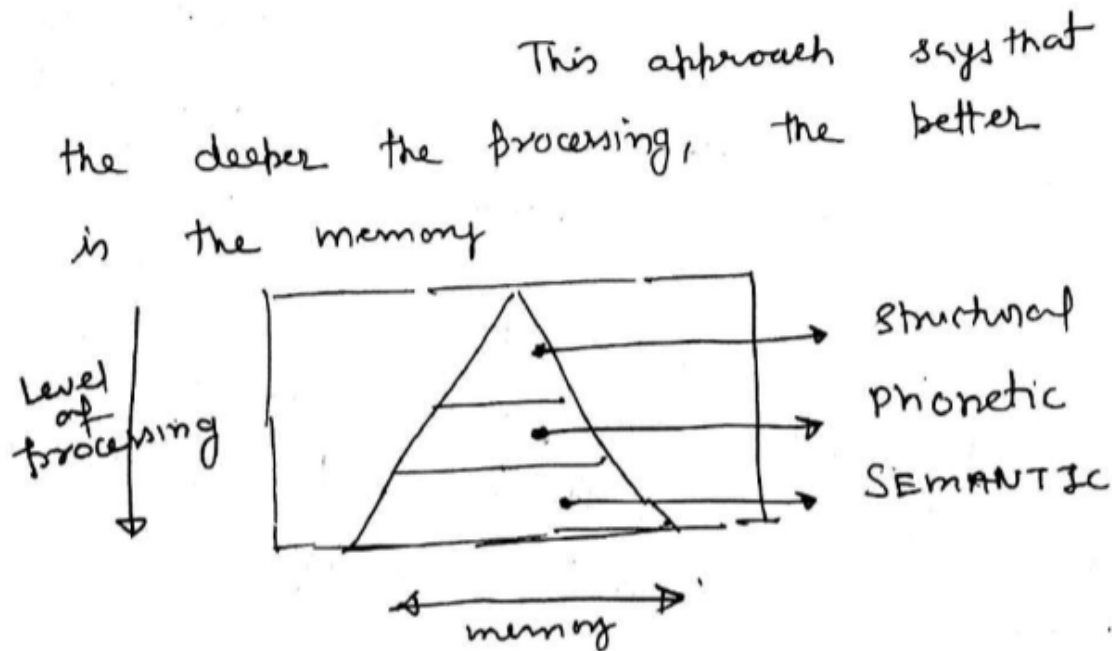 This approach says that
the deeper the processing, the better
is the memory
Structural
Level
of
processing
Phonetic
SEMANTIC
memory